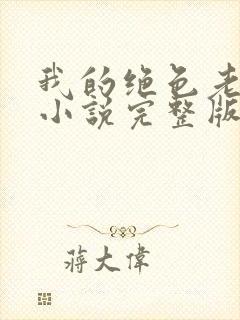 我的绝色老
小說完整版
蔣大偉